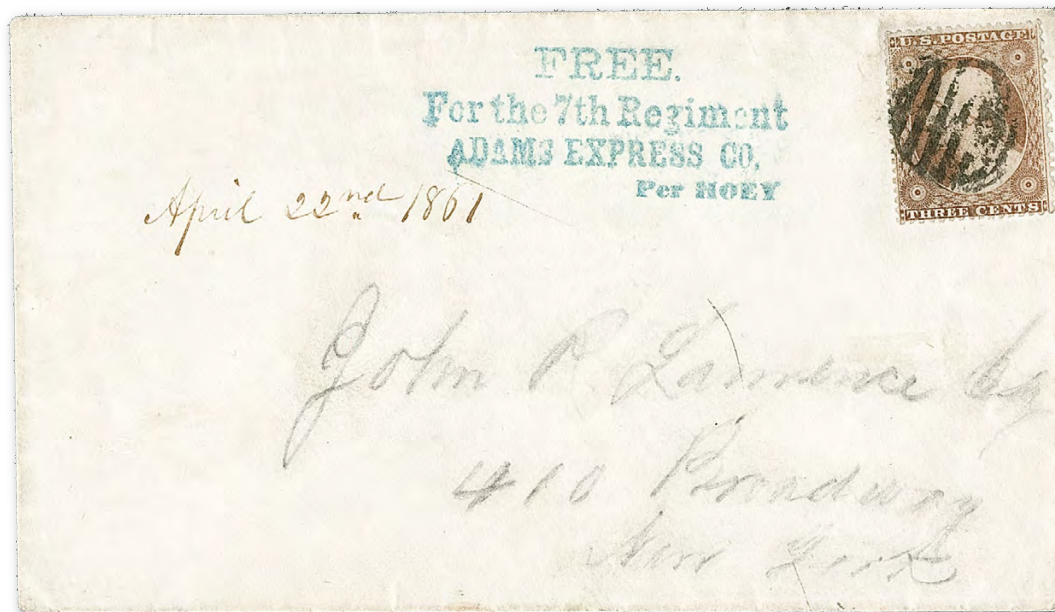 FREE.
For the 7th Regiment
ADAMS EXPRESS CO,
Per HOEY
U.S. POSTAGE
THREE CENTS
April 22nd 1861
John P. Lawrence Esq
410 Broadway
New York